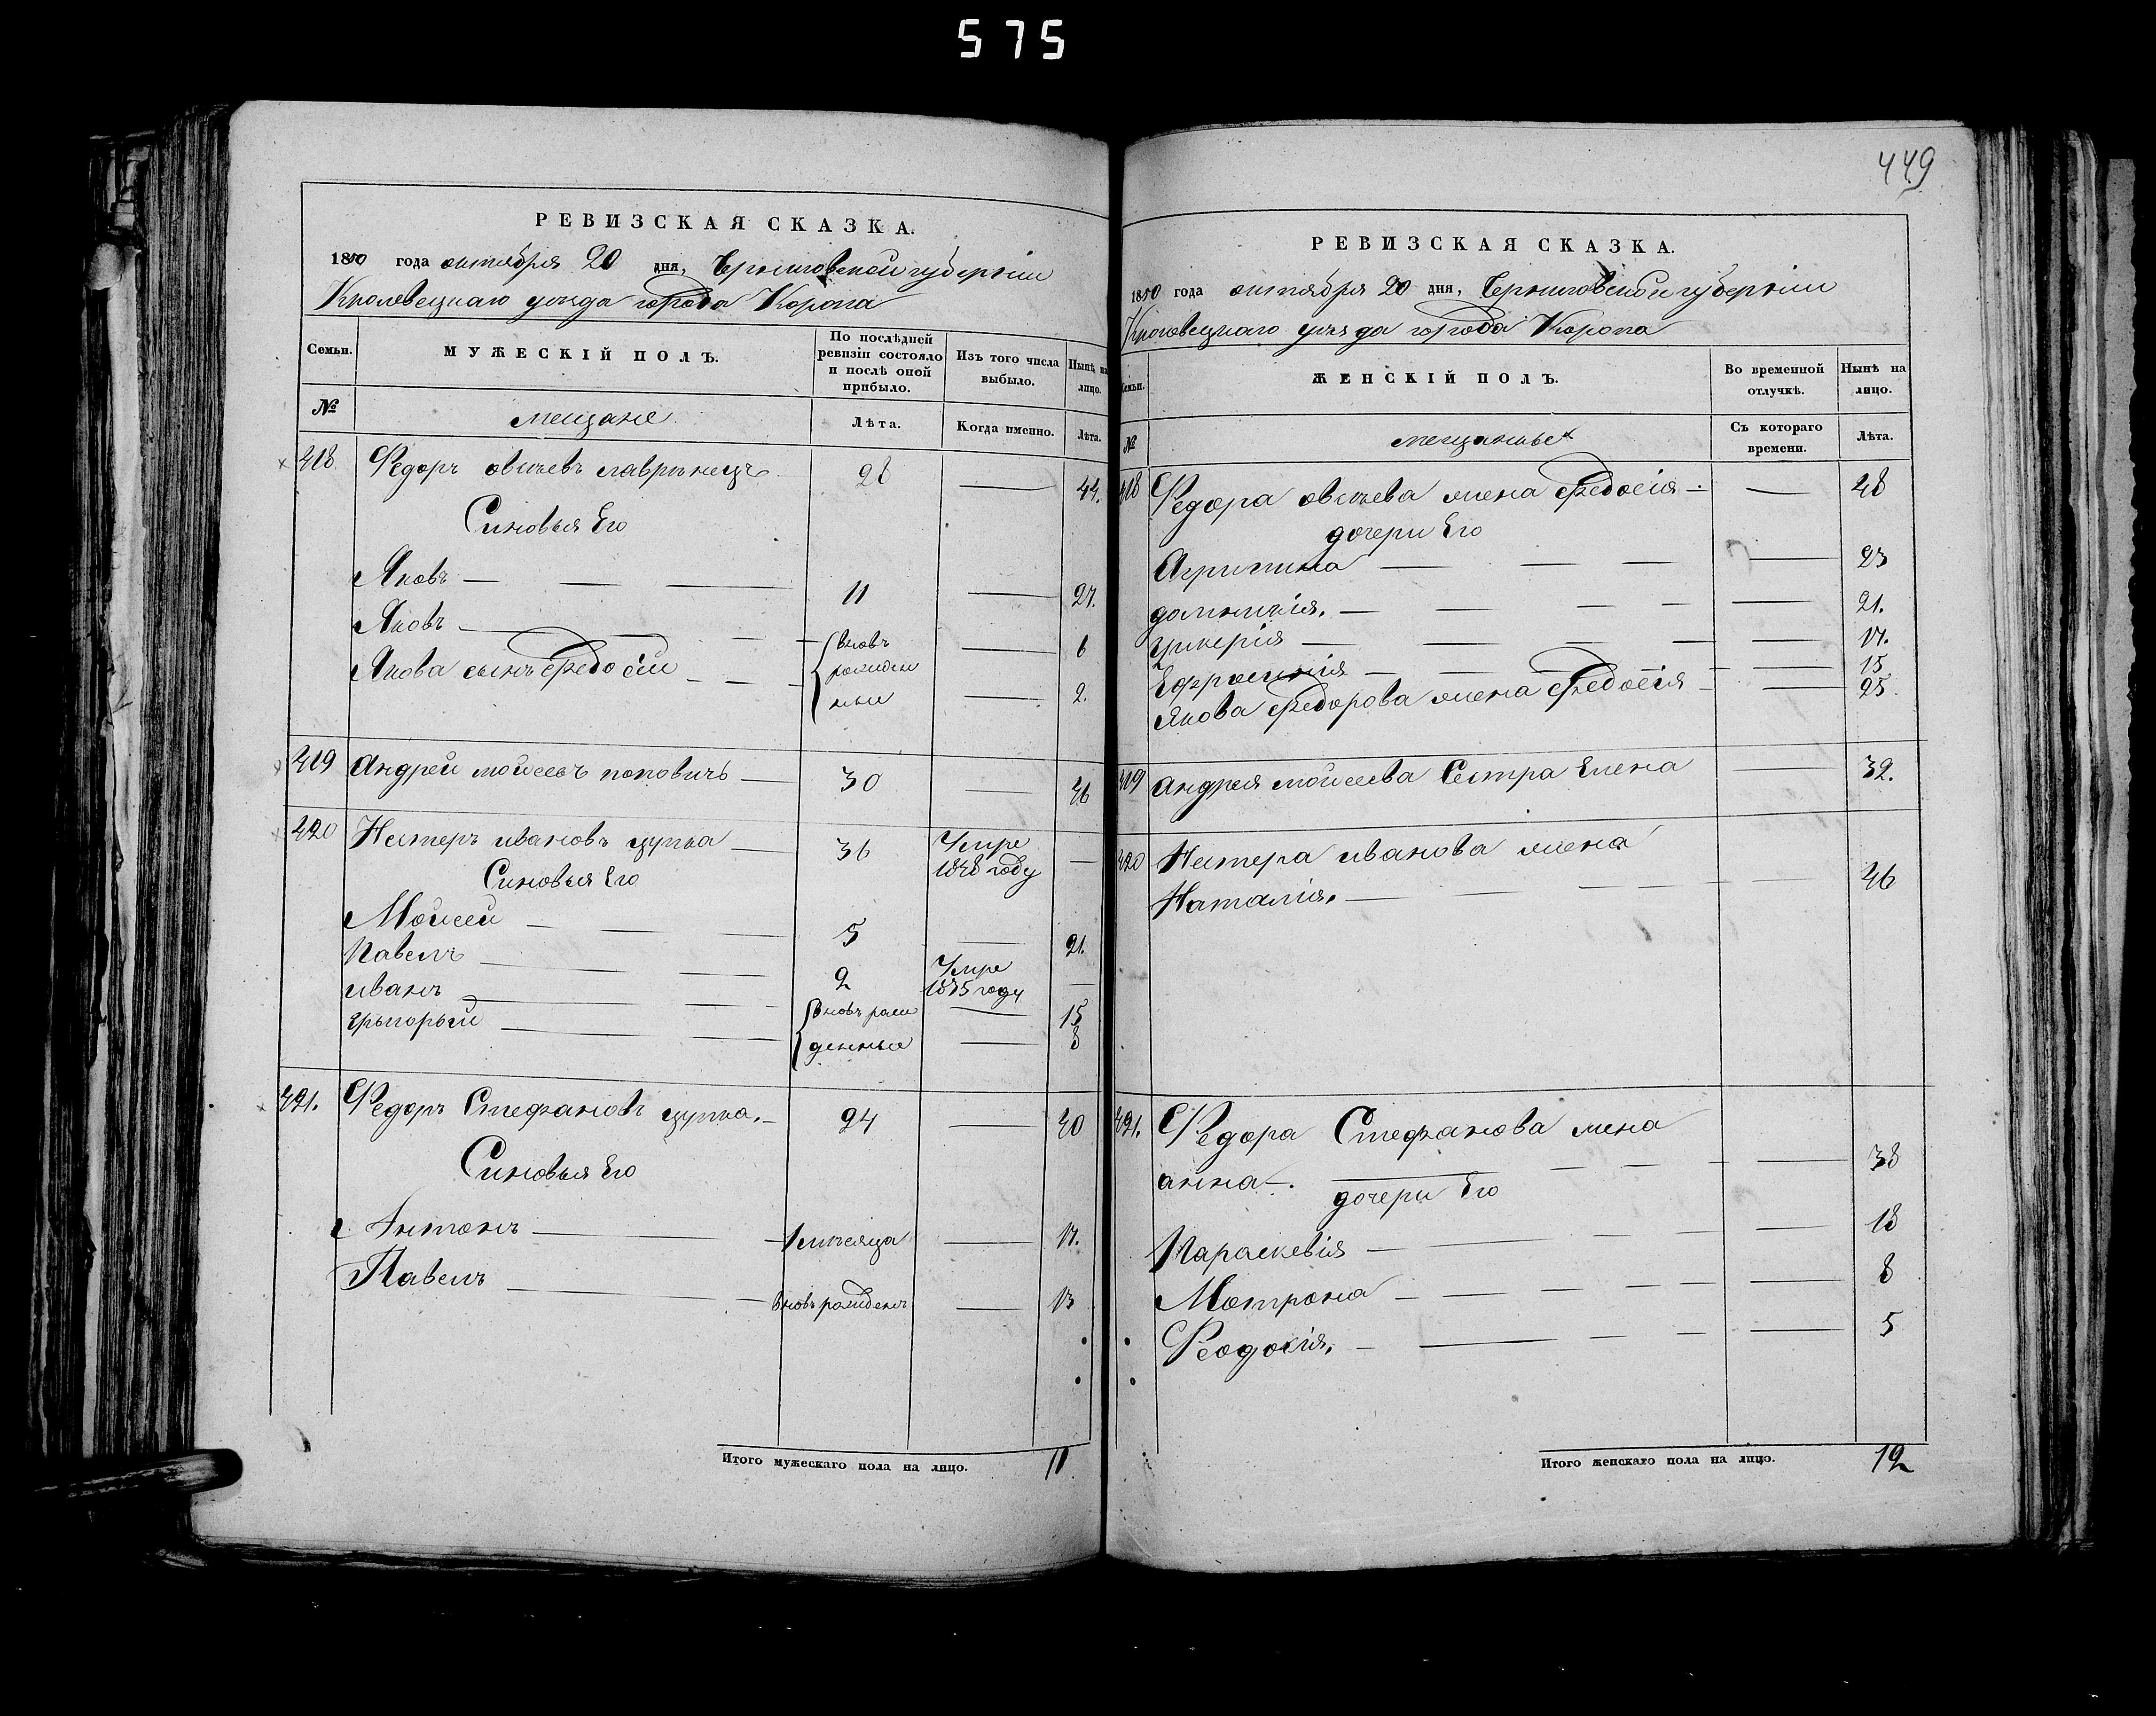 575
РЕВИЗСКАЯ СКАЗКА.
1850 года октября 20 дня, Черниговской губернии
Кролевецкаго уезда города Коропа
Семьи.
МУЖЕСКІЙ ПОЛЪ.
По послѣдней ревизіи состояло и послѣ оной прибыло.
Изъ того числа выбыло.
Нынѣ на лицо.
№
мещане
Лѣта.
Когда именно.
Лѣта.
418 Федоръ лавринецъ 28 — 44.
Синовья Его
Яковъ — 11 — 27.
Яковъ — вновь — 6
Якова сынъ Федосій — рожден ные — 2.
419 Андрей мойсеевъ поповичъ — 30 — 46
420 Нестеръ ивановъ цупка — 36 Умре 1848 году —
Синовья Его
Мойсей — 5 — 21.
Павелъ — 2 Умре 1835 году —
иванъ — вновь рож — 15
Грыгорый — денные — 8
421. Федоръ Стефановъ цупка. — 24 — 40
Синовья Его
Антонъ — 1 месяца — 17.
Павелъ — вновь рожденъ — 13
Итого мужескаго пола на лицо. 11
449
РЕВИЗСКАЯ СКАЗКА.
1850 года октября 20 дня, Черниговской губерніи
Кроловецкаго уезда города Коропа
Семьи.
ЖЕНСКІЙ ПОЛЪ.
Во временной отлучкѣ.
Нынѣ на лицо.
№
мещанъе
Съ котораго времени.
Лѣта.
418 Федора жена Федосія — 48
дочери Его
Агрипина — 23
домникія. — 21.
гликерія — 17.
Ефросинія — 15
Якова Федорова жена Федосія — 25.
419 Андрея мойсеева Сестра Елена — 32.
420 Нестера иванова жена
Наталія. — 46
421. Федора Стефанова жена
анна —. — 38
дочери Его
Параскевія — 18
Мотрона — 8
Феодосія. — 5
Итого женскаго пола на лицо. 12